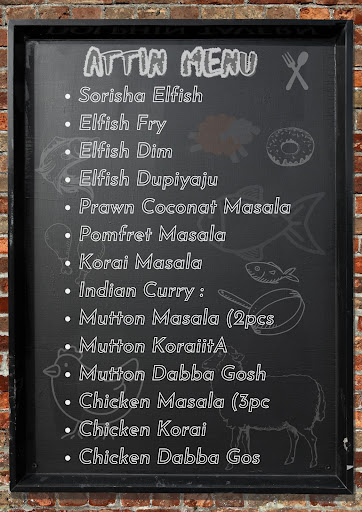 ATTIN MENU
• Sorisha Elfish
• Elfish Fry
• Elfish Dim
• Elfish Dupiyaju
• Prawn Coconat Masala
• Pomfret Masala
• Korai Masala
• Indian Curry :
• Mutton Masala (2pcs
• Mutton KoraiitA
• Mutton Dabba Gosh
• Chicken Masala (3pc
• Chicken Korai
• Chicken Dabba Gos